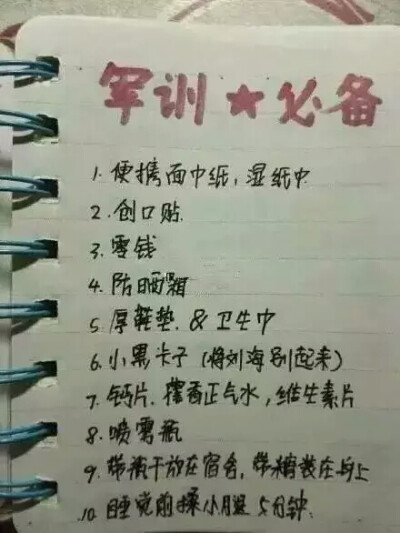 军训★必备
1. 便携面巾纸，湿纸巾
2. 创口贴
3. 零钱
4. 防晒霜
5. 厚鞋垫 & 卫生巾
6. 小黑卡子（将刘海别起来）
7. 钙片、藿香正气水，维生素片
8. 喷雾瓶
9. 带饼干放在宿舍，带糖装在身上
10. 睡觉前揉小腿5分钟.